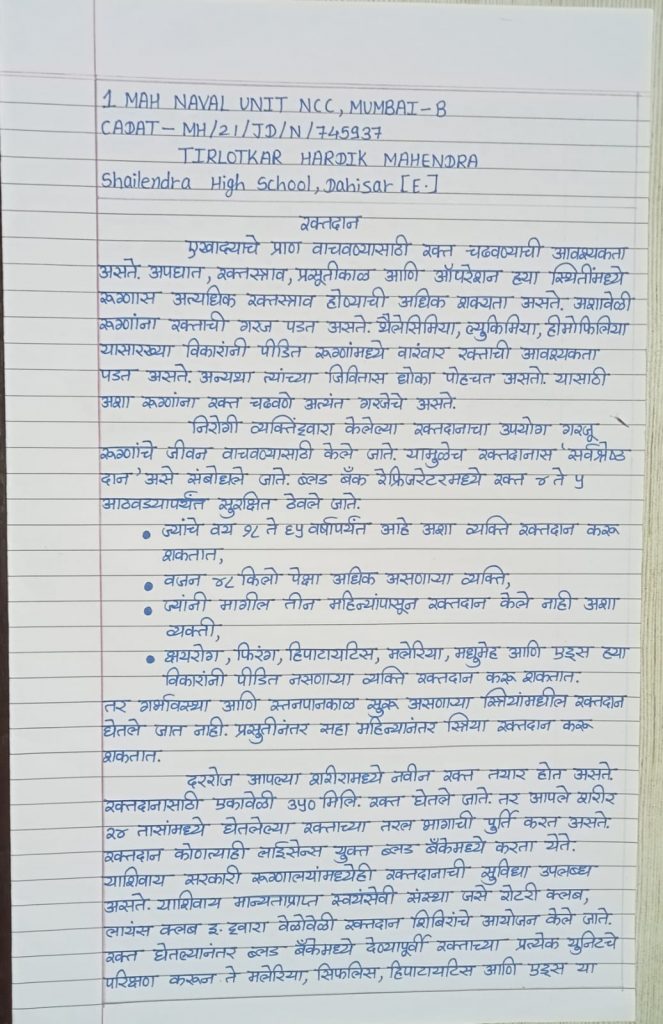 1 MAH NAVAL UNIT NCC, MUMBAI-B
CADAT - MH/21/JD/N/745937
TIRLOTKAR HARDIK MAHENDRA
Shailendra High School, Dahisar [E.]
रक्तदान
एखाद्याचे प्राण वाचवण्यासाठी रक्त चढवण्याची आवश्यकता
असते. अपघात, रक्तस्त्राव, प्रसूतीकाळ आणि ऑपरेशन ह्या स्थितींमध्ये
रूग्णास अत्यधिक रक्तस्त्राव होण्याची अधिक शक्यता असते. अशावेळी
रूग्णांना रक्ताची गरज पडत असते. थैलेसिमिया, ल्युकिमिया, हीमोफिलिया
यासारख्या विकारांनी पीडित रूग्णांमध्ये वारंवार रक्ताची आवश्यकता
पडत असते. अन्यथा त्यांच्या जिवितास धोका पोहचत असतो. यासाठी
अशा रूग्णांना रक्त चढवणे अत्यंत गरजेचे असते.
निरोगी व्यक्तिंद्वारा केलेल्या रक्तदानाचा उपयोग गरजू
रूग्णांचे जीवन वाचवण्यासाठी केले जाते. यामुळेच रक्तदानास 'सर्वश्रेष्ठ
दान' असे संबोधले जाते. ब्लड बँक रेफ्रिजरेटरमध्ये रक्त ४ ते ५
आठवड्यापर्यंत सुरक्षित ठेवले जाते.
• ज्यांचे वय १८ ते ६५ वर्षापर्यंत आहे अशा व्यक्ति रक्तदान करू
शकतात,
• वजन ४८ किलो पेक्षा अधिक असणाऱ्या व्यक्ति,
• ज्यांनी मागील तीन महिन्यांपासून रक्तदान केले नाही अशा
व्यक्ती,
• क्षयरोग, फिरंग, हिपाटायटिस, मलेरिया, मधुमेह आणि एड्स ह्या
विकारांनी पीडित नसणाऱ्या व्यक्ति रक्तदान करू शकतात.
तर गर्भावस्था आणि स्तनपानकाळ सुरू असणाऱ्या स्त्रियांमधील रक्तदान
घेतले जात नाही. प्रसुतीनंतर सहा महिन्यानंतर स्त्रिया रक्तदान करू
शकतात.
दररोज आपल्या शरीरामध्ये नवीन रक्त तयार होत असते.
रक्तदानासाठी एकावेळी ३५० मिलि. रक्त घेतले जाते. तर आपले शरीर
२४ तासांमध्ये घेतलेल्या रक्ताच्या तरल भागाची पुर्ति करत असते.
रक्तदान कोणत्याही लाईसेन्स युक्त ब्लड बँकेमध्ये करता येते.
याशिवाय सरकारी रूग्णालयांमध्येही रक्तदानाची सुविधा उपलब्ध
असते. याशिवाय मान्यताप्राप्त स्वयंसेवी संस्था जसे रोटरी क्लब,
लायंस क्लब इ. द्वारा वेळोवेळी रक्तदान शिबिरांचे आयोजन केले जाते.
रक्त घेतल्यानंतर ब्लड बँकेमध्ये देण्यापूर्वी रक्ताच्या प्रत्येक युनिटचे
परिक्षण करून ते मलेरिया, सिफलिस, हिपाटायटिस आणि एड्स या